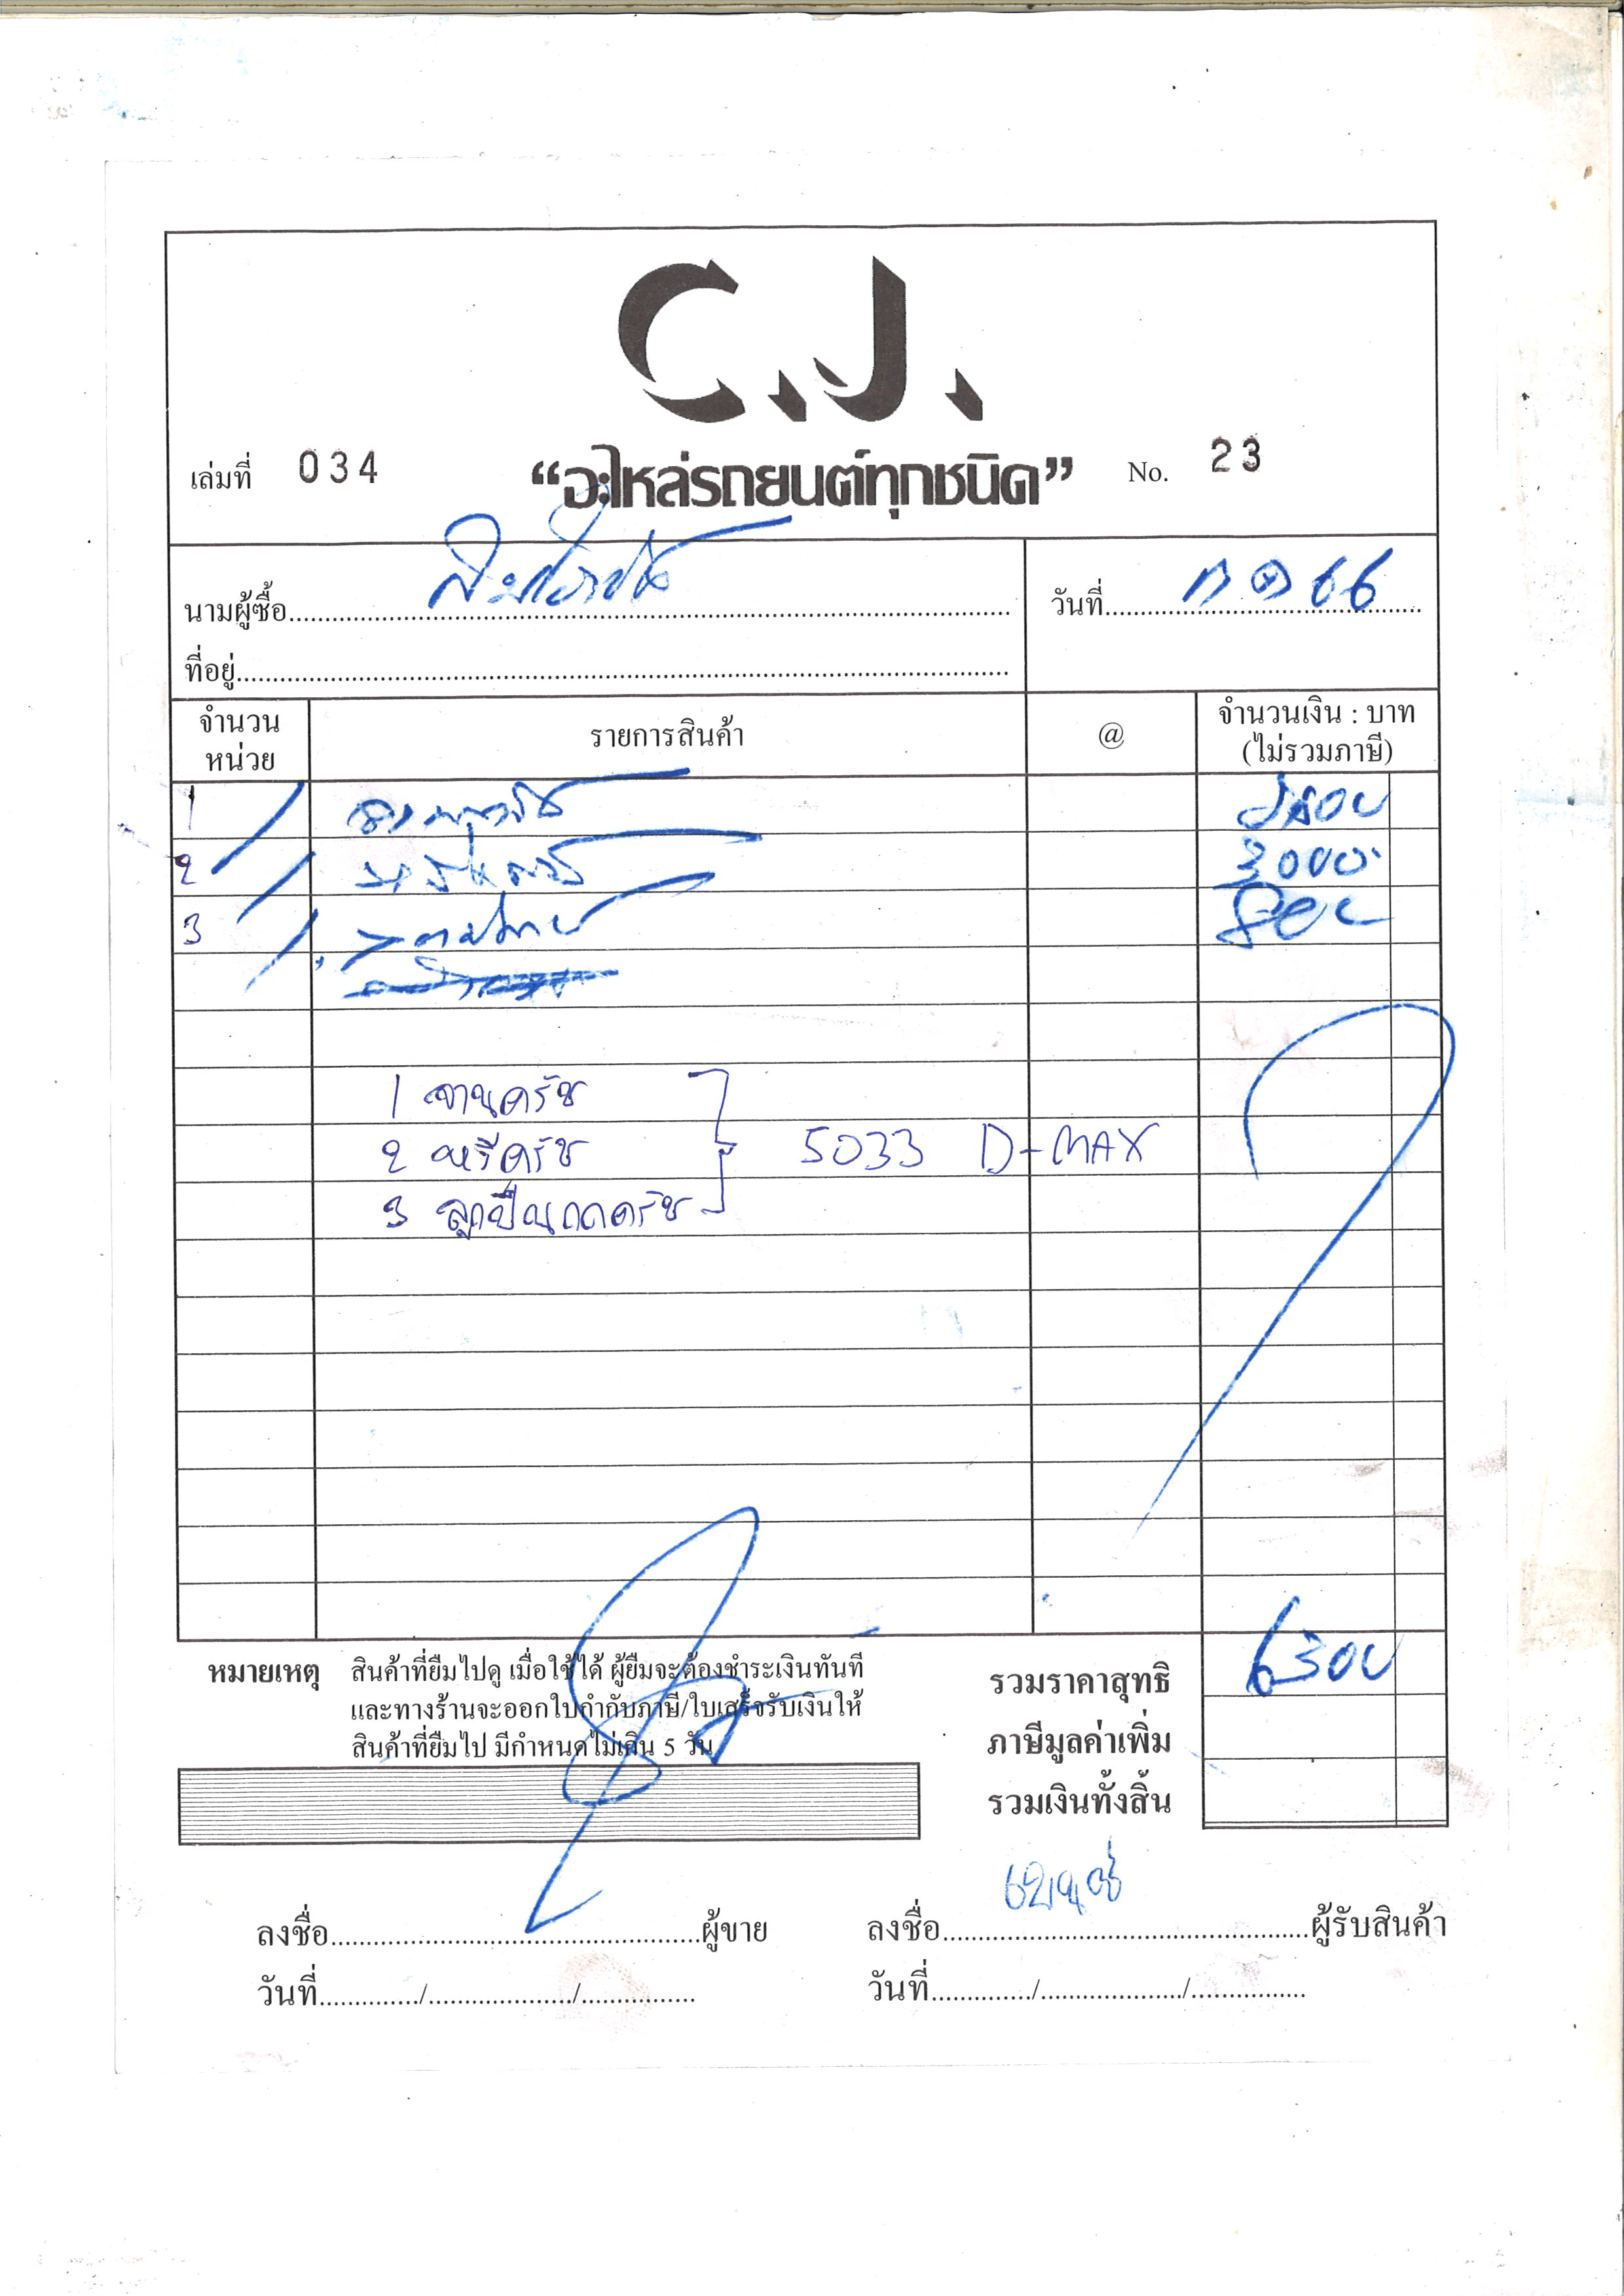 C.J.
เล่มที่ 034 “อะไหล่รถยนต์ทุกชนิด” No. 23
นามผู้ซื้อ
วันที่ 66
ที่อยู่
จำนวนหน่วย รายการสินค้า @ จำนวนเงิน : บาท (ไม่รวมภาษี)
1
2 3000
3
1 จานครัช
2 หวีครัช 5033 D-MAX
3 ลูกปืนกดครัช
หมายเหตุ สินค้าที่ยืมไปดู เมื่อใช้ได้ ผู้ยืมจะต้องชำระเงินทันที
และทางร้านจะออกใบกำกับภาษี/ใบเสร็จรับเงินให้
สินค้าที่ยืมไป มีกำหนดไม่เกิน 5 วัน
รวมราคาสุทธิ 6300
ภาษีมูลค่าเพิ่ม
รวมเงินทั้งสิ้น
ลงชื่อ ผู้ขาย ลงชื่อ ผู้รับสินค้า
วันที่ / / วันที่ / /